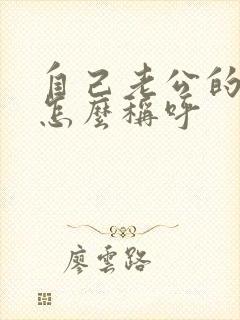 自己老公的
怎麼稱呼
廖雲路